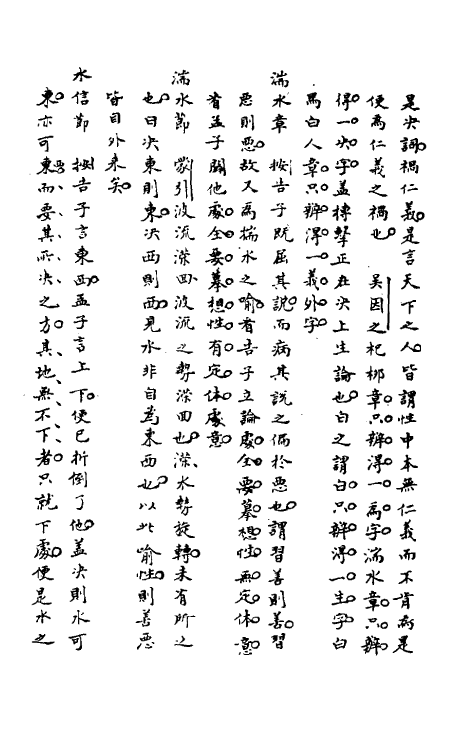 是決詞禍仁義是言天下之人皆謂性中本無仁義而不肯為是
便為仁義之禍也　吳因之杞柳章只辨得一為字湍水章只辨
得一決字蓋搏擊正在決上生論也白之謂白只辨得一生字白
馬白人章只辨得一義外字
湍水章　按告子既屈其說而病其說之偏於惡也謂習善則善習
惡則惡故又為湍水之喻看告子立論處全要摹想性無定体意
看孟子闢他處全要摹想性有定体處意
湍水節　蒙引波流濚囬波流之勢濚囬也濚水勢旋轉未有所之
也曰決東則東決西則西見水非自為東西也以此喻性則善惡
皆自外来矣
水信節　按告子言東西孟子言上下便已折倒了他蓋決則水可
東亦可東而要其所決之方其地無不下者只就下處便是水之